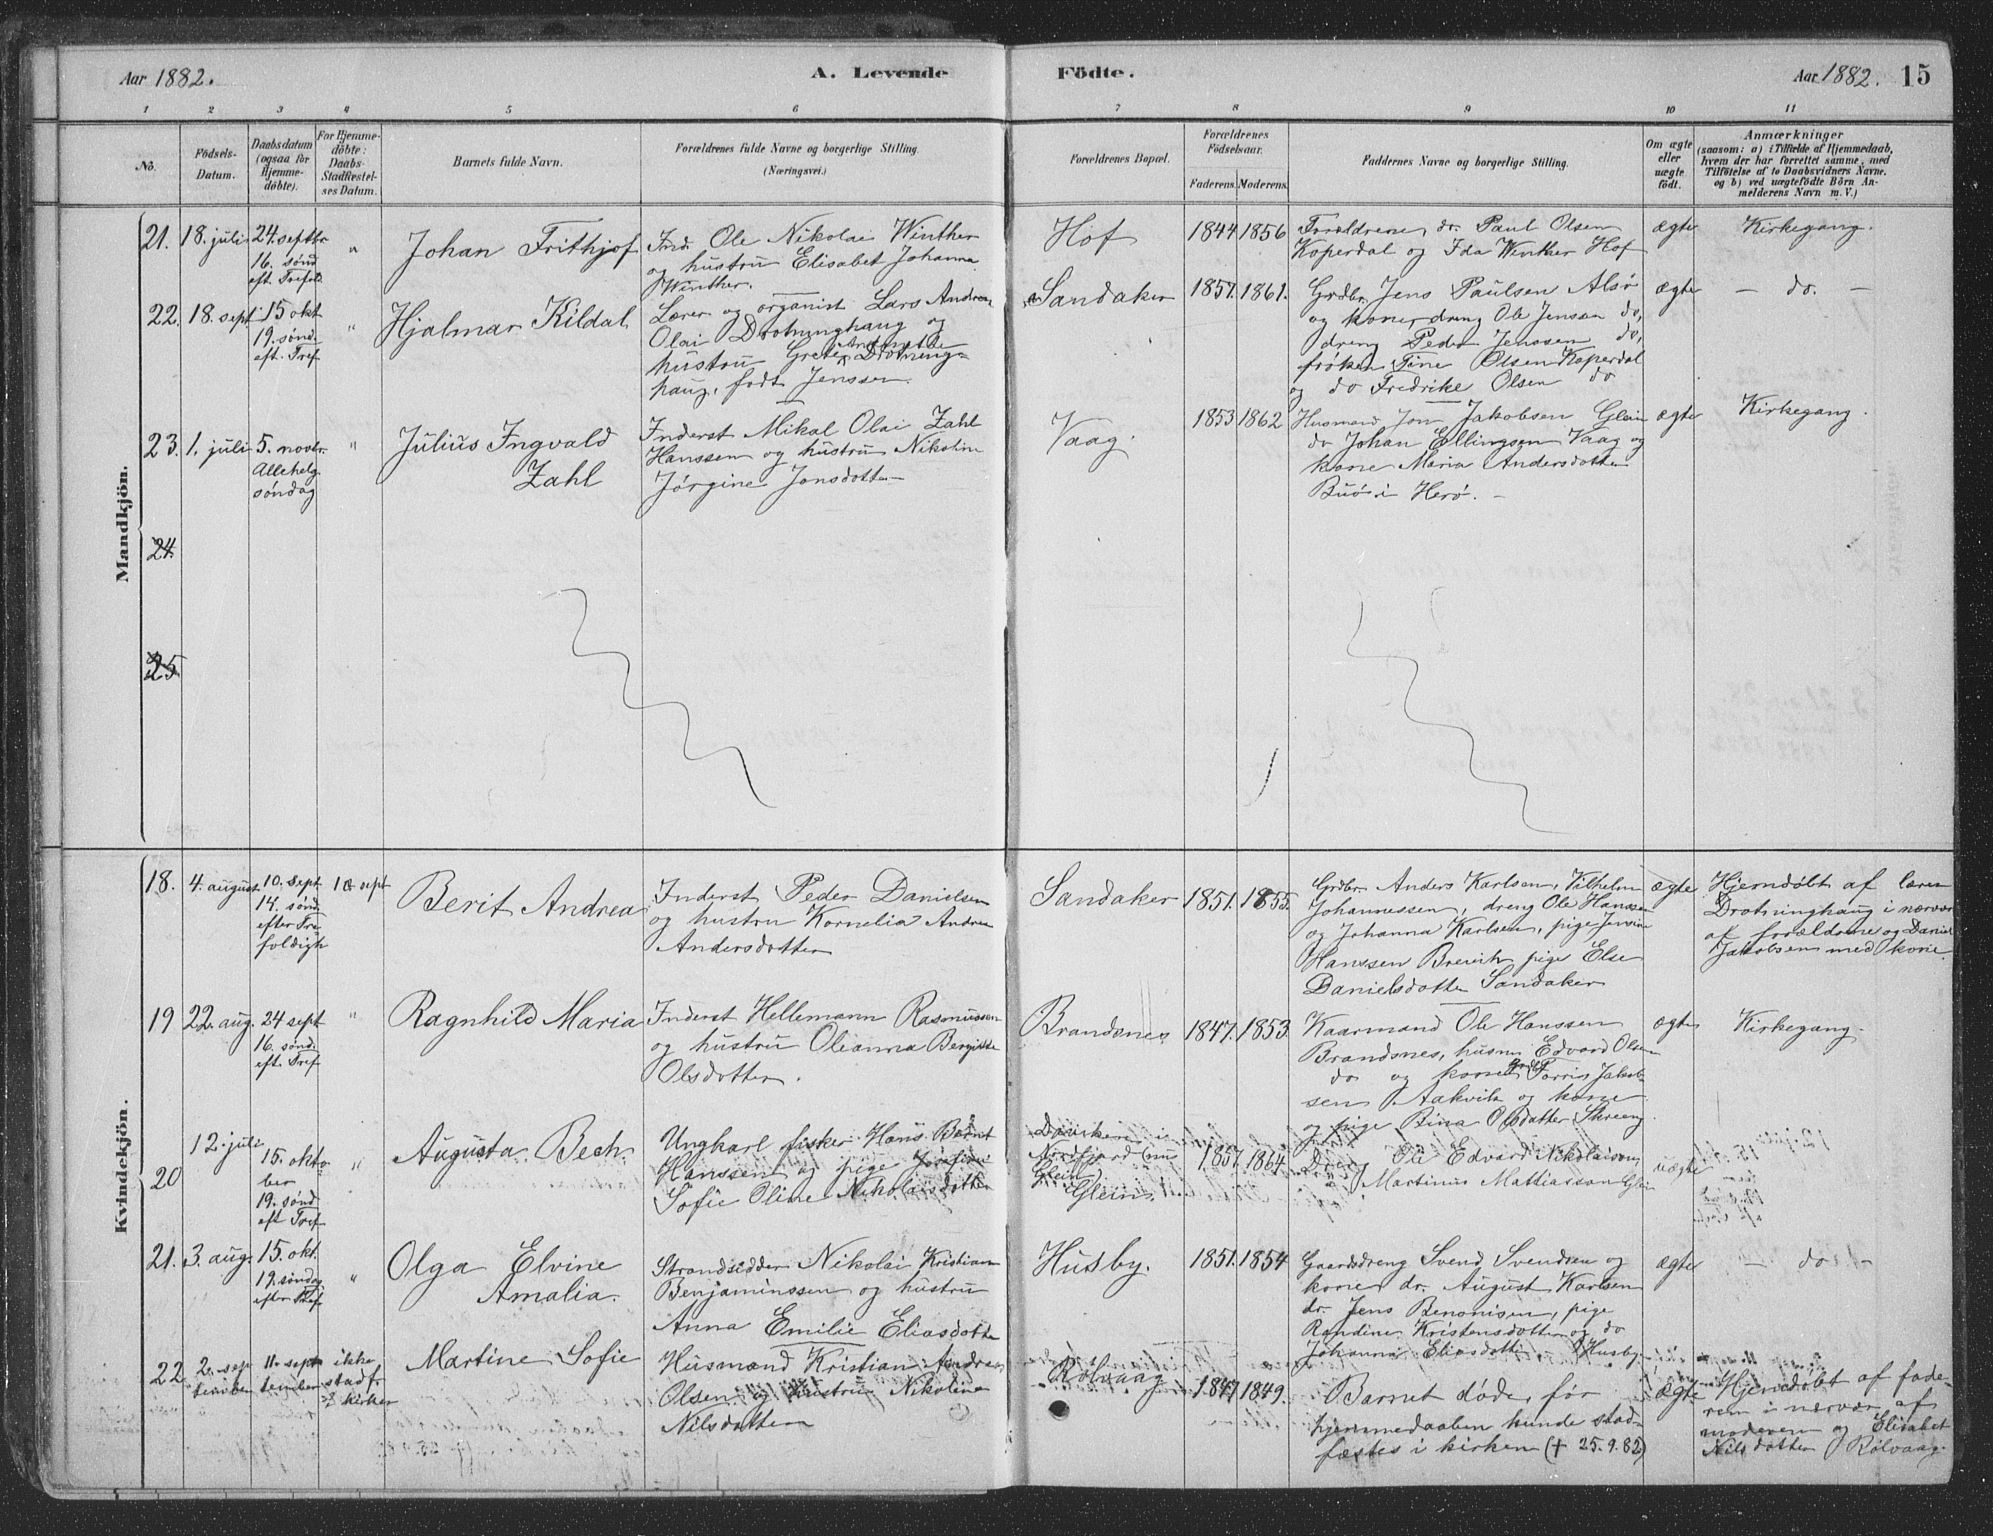 Aar 1882.
A. Levende
Födte.
Aar 1882. 15
1 2 3 4 5 6 7 8 9 10 11
No.
Födsels-
Datum.
Daabsdatum
(ogsaa for
Hjemme-
döbte).
For Hjemme-
döbte:
Daabs-
Stadfæstel-
ses Datum.
Barnets fulde Navn.
Forældrenes fulde Navne og borgerlige Stilling.
(Næringsvei.)
Forældrenes Bopæl.
Forældrenes
Födselsaar.
Faderens. Moderens.
Faddernes Navne og borgerlige Stilling.
Om ægte
eller
uægte
födt.
Anmærkninger
(saasom: a) i Tilfælde af Hjemmedaab,
hvem der har forrettet samme, med
Tilföielse af to Daabsvidners Navne.
og b) ved uægtefödte Börn An-
melderens Navn m. V.)
Mandkjön.
21. 18. juli
24. septbr
16. sønd
eft. Trefold
"
Johan Frithjof
Ind. Ole Nikolai Winther
og hustru Elisabet Johanna
Winther.
Hof
1844 1856
Forældrene, dr. Paul Olsen
Koperdal og Ida Winther Hof
ægte
Kirkegang.
22. 18. sept
15 okt
19. sønd.
eft. Tref
"
Hjalmar Kildal
Lærer og organist Lars Andreas
Olai Drotninghaug og
hustru Grete Drotning-
haug, født Jenssen.
Sandaker
1857. 1861.
Grdbr. Jens Paulsen Alsø
og kone, dreng Ole Jensen do,
dreng Peder Jenssen do,
frøken Tine Olsen Koperdal
og do Fredrike Olsen do
ægte
- do. -
23. 1. juli
5. novbr.
Allehelg.
søndag
"
Julius Ingvald
Zahl
Inderst Mikal Olai Zahl
Hanssen og hustru Nikoline
Jørgine Jonsdotter
Vaag.
1853 1862
Husmand Jon Jakobsen Glein
do Johan Ellingsen Vaag og
kone Maria Andersdotter
Buø i Herø. -
ægte
Kirkegang.
24.
25
Kvindekjön.
18. 4. august
10. sept
14. sønd.
efter Tre-
foldigh
10 sept
Berit Andrea
Inderst Peder Danielsen
og hustru Kornelia Andrea
Andersdotter
Sandaker
1851. 1855.
Grdbr. Anders Karlsen, Vilhelm
Johannessen, dreng Ole Hanssen
og Johanna Karlsen, pige
Hanssen Brevik pige Else
Danielsdotter Sandaker
ægte
Hjemdøbt af lærer
Drotninghaug i nærvær
af forældrene og Daniel
Jakobsen med kone.
19 22. aug.
24 sept
16. sønd.
eft. Tref
"
Ragnhild Maria
Inderst Hellemann Rasmussen
og hustru Oleanna Bergitte
Olsdotter.
Brandsnes
1847. 1853.
Kaarmand Ole Hanssen
Brandsnes, husm. Edvard Olsen
do og kone, Torris Jakob-
sen Aakvik og kone
og pige Bina Olsdatter
ægte
Kirkegang.
20
12. juli
15. okto
ber
19. sønd
eft Tref
"
Augusta Bech.
Ungkarl fisker Hans Bernt
Hanssen og pige
Sofie Oline Nikolaisdotter
Nordfjord
Glein
Glein.
1857 1864
Ole Edvard Nikolaisen,
Martinus Mattiassen Glein
uægte
21. 3. aug.
15. okt.
19. søndag
efter Tref
"
Olga Elvine
Amalia.
Strandsidder Nikolai Kristian
Benjaminssen og hustru
Anna Emilie Eliasdotter
Husby.
1851. 1854
Gaardsdreng Svend Svendsen og
kone, dr. August Karlsen
dr. Jens Benonisen, pige
Randine Kristensdotter og do
Johanna Eliasdotter Husby
ægte
- do -
22 2. sep
tember
11. sept
tember
ikke
stadf
i kirken
Martine Sofie
Husmand Kristian Andreas
Olsen og hustru Nikoline
Nilsdotter
Rølvaag
1847 1849.
Barnet døde, før
hjemmedaaben kunde stad-
fæstes i kirken (+ 25.9.82)
ægte
Hjemdøbt af fade-
ren i nærvær af
moderen og Elisabet
Nilsdotter Rølvaag.